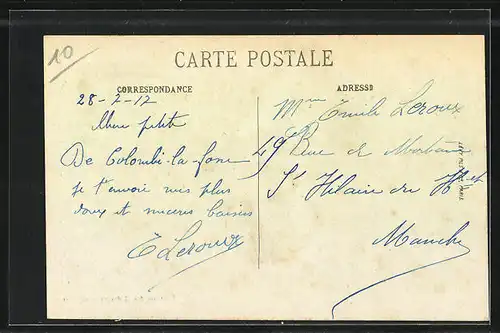 10
CARTE POSTALE
CORRESPONDANCE
ADRESSE
28-2-12
Mon petit
De Colombi la fosse
je t'envoie mes plus
doux et sincères baisers
E Leroux
Mme Emile Leroux
49 Rue de Mortain
St Hilaire du H-et
Manche